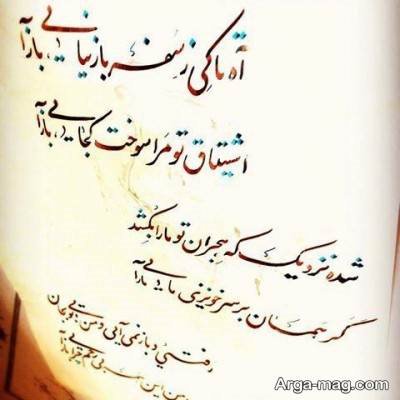 آه تا کی ز سفر باز نیایی، بازآ
اشتیاق تو مرا سوخت کجایی، بازآ
شده نزدیک که هجران تو ما را بکشد
گر همان بر سر خونریزی مایی بازآ
رفتی و باز نمی‌آیی و من بی تو به جان
من این
Arga-mag.com